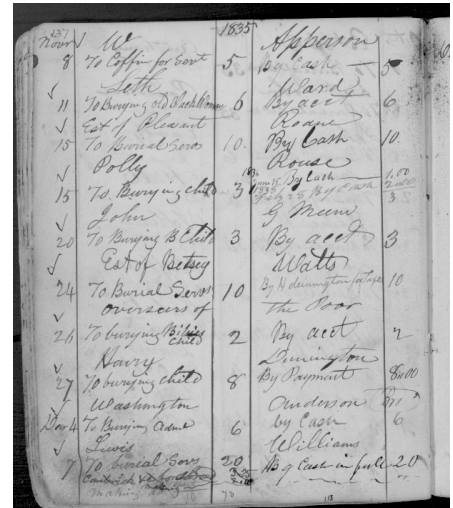 1835
Novr W Apperson
8 To Coffin for Servt 5 By Cash 5
Seth Ward
11 To Burying old Black Woman 6 By acct 6
Est of Pleasant Roane
15 To Burial Servs 10. By Cash 10.
Polly Rouse
15 To Burying child 3 By Cash 1.00
By Cash 2.00
3
John G Mum
20 To Burying B Child 3 By acct 3
Est of Betsey Watts
24 To Burial Servs 10 By 10
overseers of the Poor
26 To burying Child 2 By acct 2
Harry Dunington
27 To burying child 8 By Payment 8.00
Washington Anderson
Decr 4 To Burying Adult 6 by Cash 6
Lewis Williams
7 To burial Servs 20 By Cash in full 20
making